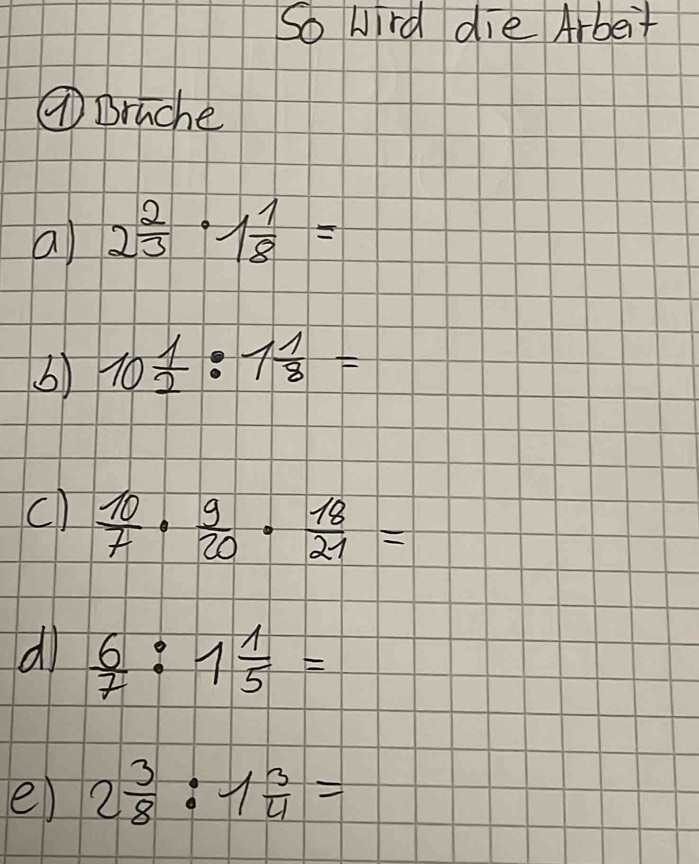 So wird die Arbeit
① Brüche
a) 2 2/3 · 1 1/8 =
b) 10 1/2 : 1 1/8 =
c) 10/7 · 9/20 · 18/21 =
d) 6/7 : 1 1/5 =
e) 2 3/8 : 1 3/4 =